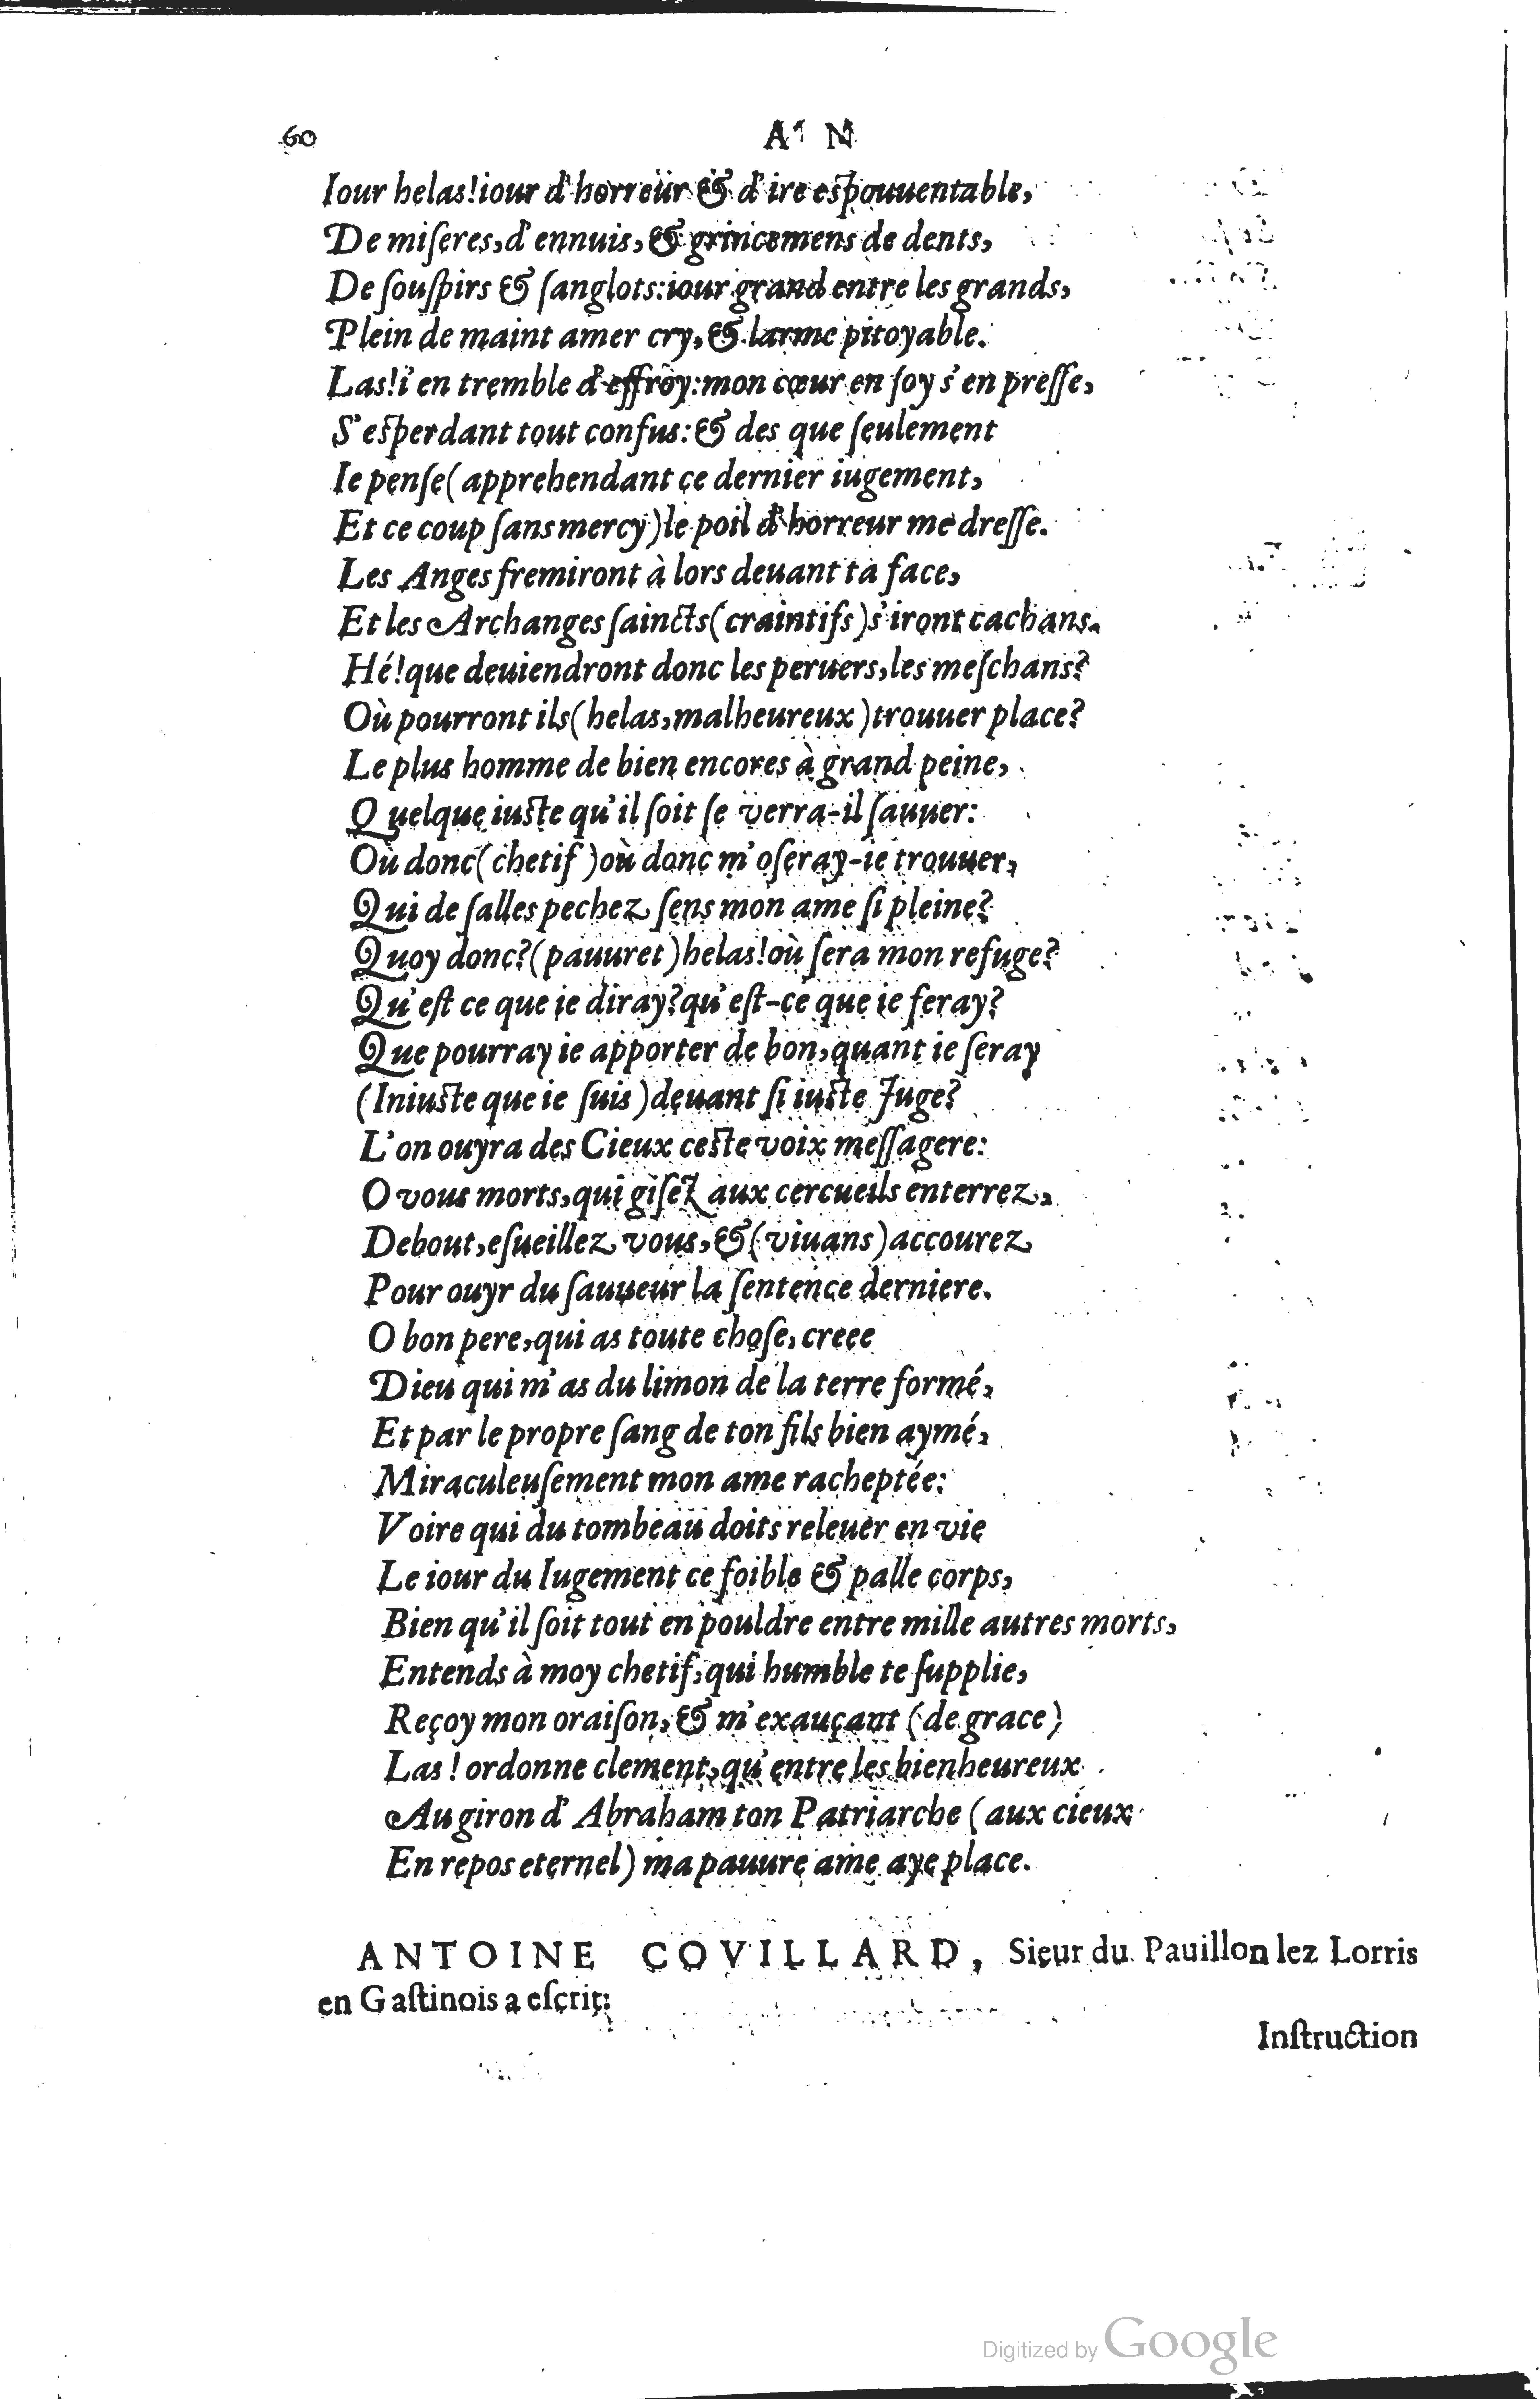 60 A N
Iour helas!iour d'horreur & d'ire espouuentable,
De miſeres,d'ennuis,& grincemens de dents,
De ſouſpirs & ſanglots:iour grand entre les grands,
Plein de maint amer cry,& larme pitoyable.
Las!i'en tremble d'effroy:mon cœur en ſoy s'en preſſe,
S'esperdant tout confus:& des que ſeulement
Ie penſe(apprehendant ce dernier iugement,
Et ce coup ſans mercy)le poil d'horreur me dreſſe.
Les Anges fremiront à lors deuant ta face,
Et les Archanges ſaincts(craintifs)s'iront cachans.
Hé!que deuiendront donc les peruers,les meſchans?
Où pourront ils(helas,malheureux)trouuer place?
Le plus homme de bien encores à grand peine,
Quelque iuste qu'il ſoit ſe verra-il ſauuer:
Où donc(chetif)où donc m'oſeray-ie trouuer,
Qui de ſalles pechez ſens mon ame ſi pleine?
Quoy donc?(pauuret)helas!où ſera mon refuge?
Qu'eſt ce que ie diray?qu'eſt-ce que ie feray?
Que pourray ie apporter de bon,quant ie ſeray
(Iniuste que ie ſuis)deuant ſi iuste Juge?
L'on ouyra des Cieux ceste voix meſſagere:
O vous morts,qui giſez aux cercueils enterrez,
Debout,eſueillez vous,&(viuans)accourez
Pour ouyr du ſauueur la ſentence derniere.
O bon pere,qui as toute choſe,creee
Dieu qui m'as du limon de la terre formé,
Et par le propre ſang de ton fils bien aymé,
Miraculeuſement mon ame racheptée:
Voire qui du tombeau doits releuer en vie
Le iour du Iugement ce foible & palle corps,
Bien qu'il ſoit tout en pouldre entre mille autres morts,
Entends à moy chetif,qui humble te ſupplie,
Reçoy mon oraiſon,& m'exauçant (de grace)
Las ! ordonne clement,qu'entre les bienheureux
Au giron d'Abraham ton Patriarche (aux cieux
En repos eternel) ma pauure ame aye place.
ANTOINE COVILLARD, Sieur du Pauillon lez Lorris
en Gaſtinois a eſcrit:
Inſtruction
Digitized by Google